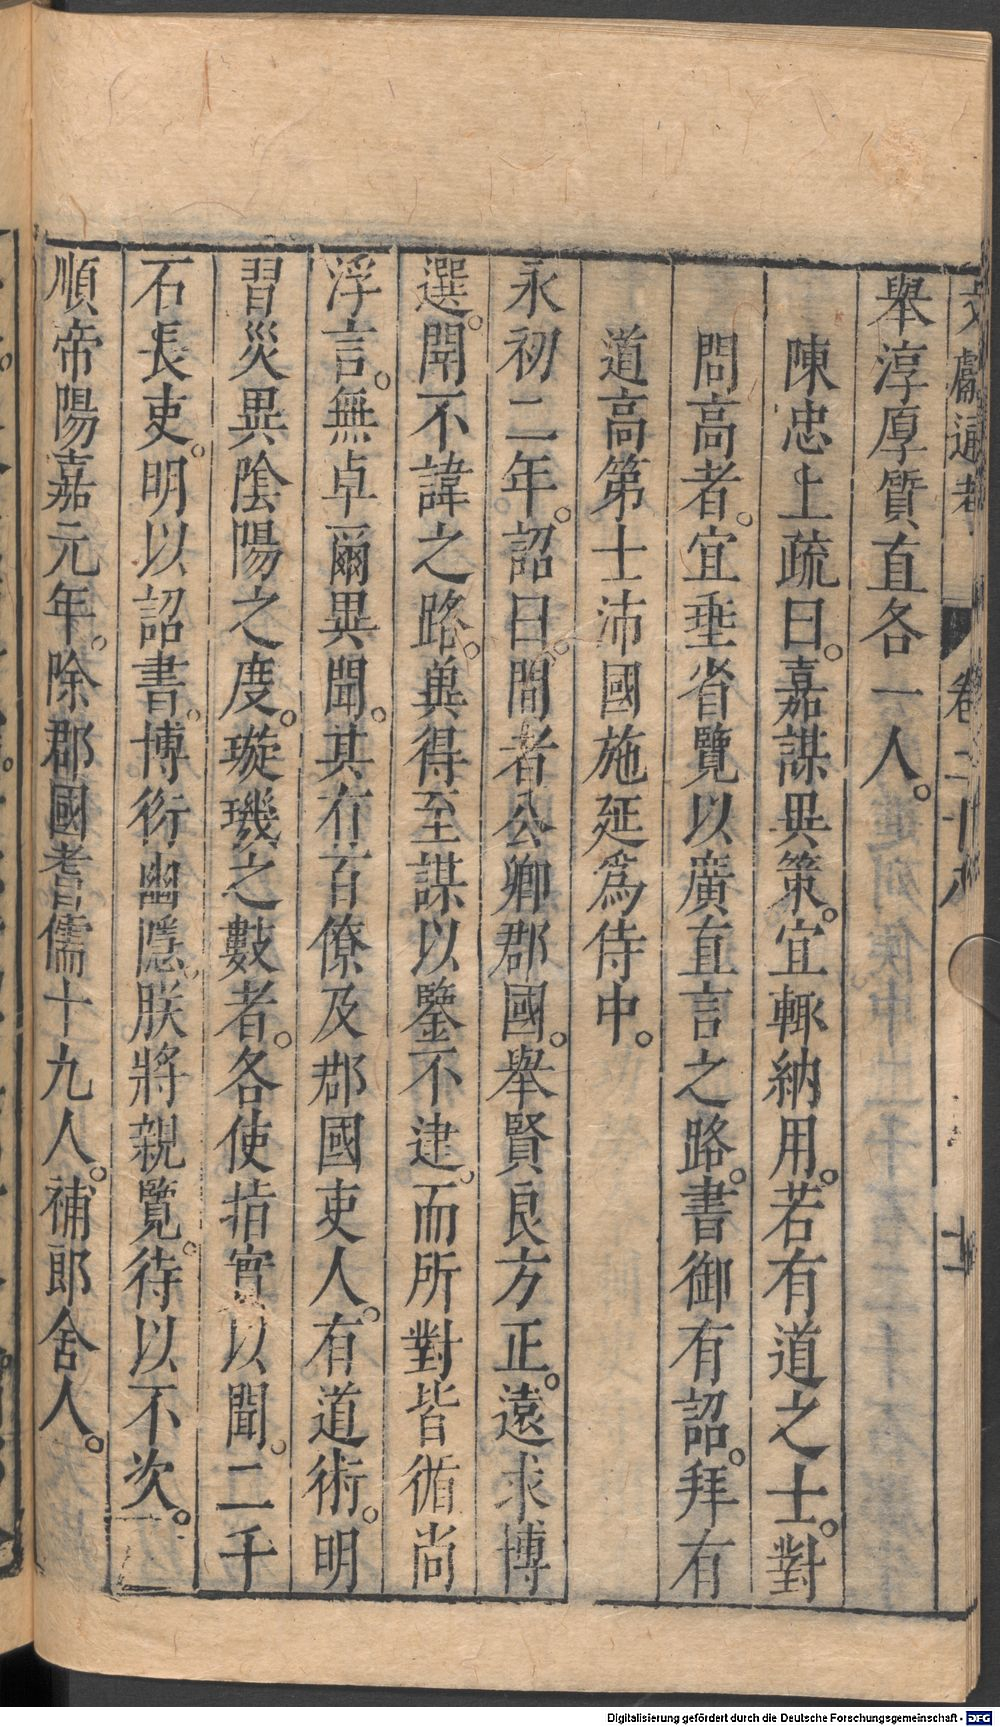 文獻通考 卷二十八 十二
舉淳厚質直各一人。
陳忠上疏曰。嘉謀異策。宜輒納用。若有道之士。對
問高者。宜垂省覽以廣直言之路。書御有詔。拜有
道高第士沛國施延爲侍中。
永初二年。詔曰。間者公卿郡國。舉賢良方正。遠求博
選。開不諱之路。兾得至謀以鑒不逮。而所對皆循尚
浮言。無卓爾異聞。其有百僚及郡國吏人。有道術。明
習災異陰陽之度。璇璣之數者。各使指實以聞。二千
石長吏。明以詔書。博衍幽隱。朕將親覽。待以不次。
順帝陽嘉元年。除郡國耆儒十九人。補郎舍人。
Digitalisierung gefördert durch die Deutsche Forschungsgemeinschaft - DFG